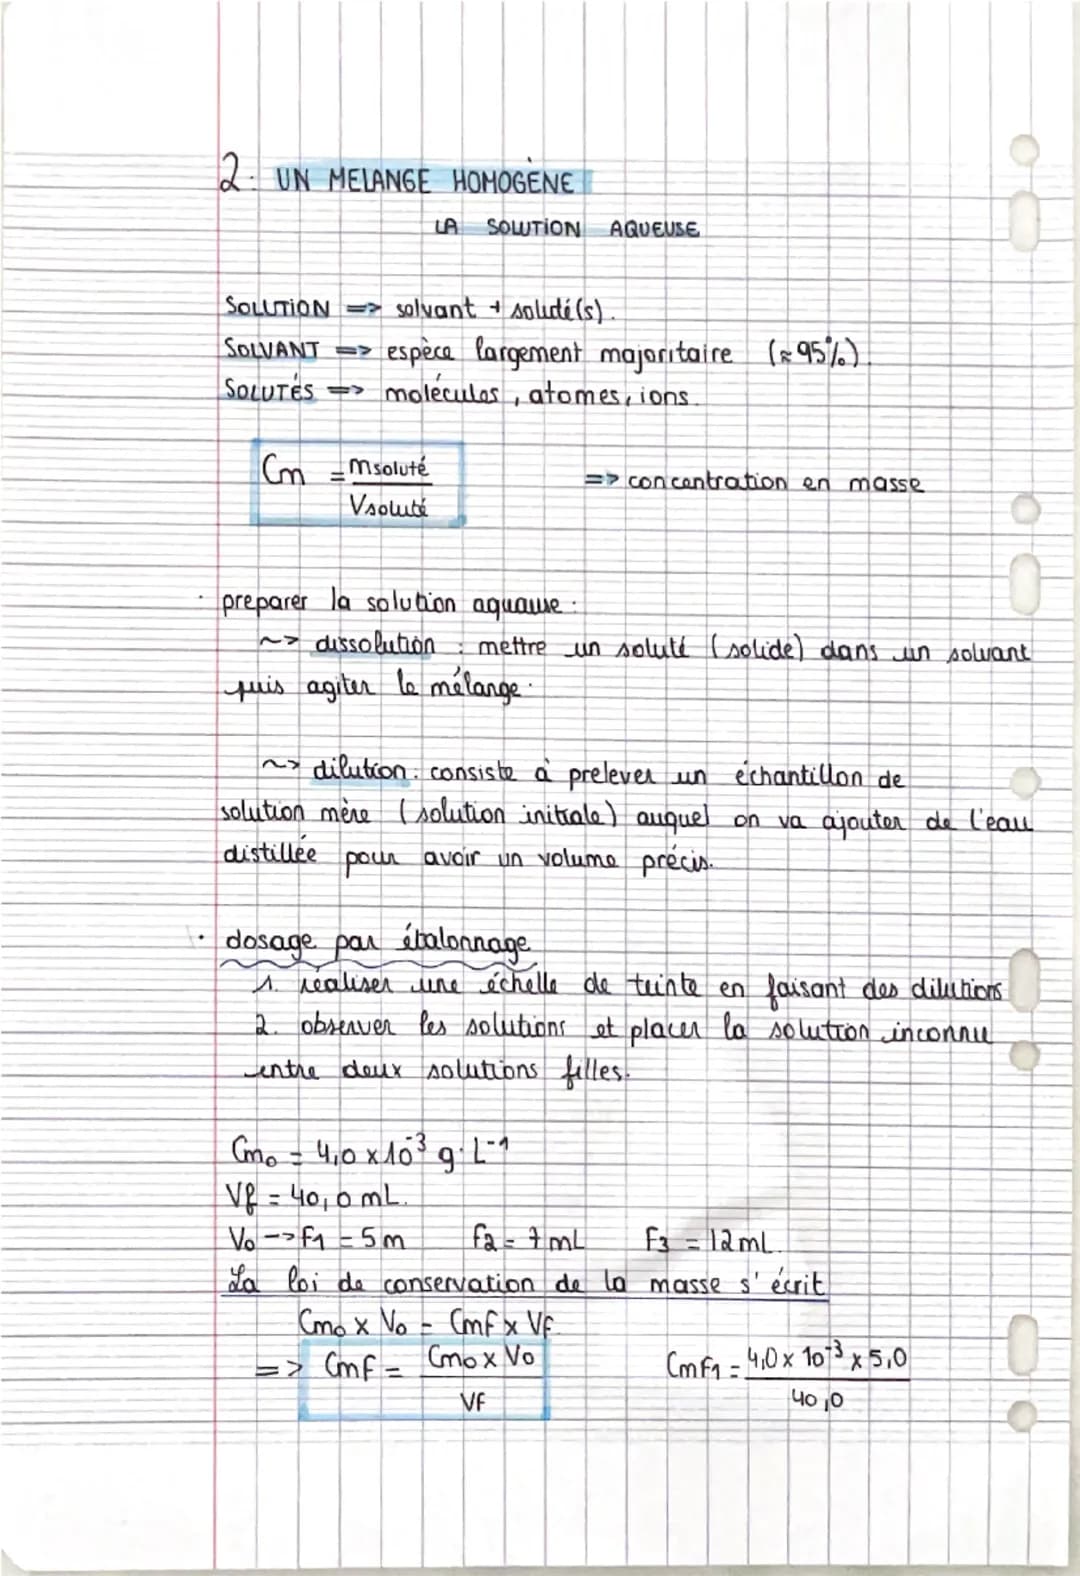 2. UN MELANGE HOMOGÈNE
LA SOLUTION AQUEUSE
SOLUTION => solvant + soluté(s).
SOLVANT => espèce largement majoritaire (≈95%).
SOLUTÉS => molécules, atomes, ions.
Cm = msoluté / Vsoluté => concentration en masse
· preparer la solution aqueuse :
~> dissolution : mettre un soluté (solide) dans un solvant
puis agiter le mélange.
~> dilution : consiste à prelever un échantillon de
solution mère (solution initiale) auquel on va ajouter de l'eau
distillée pour avoir un volume précis.
· dosage par étalonnage
1. réaliser une échelle de teinte en faisant des dilutions
2. observer les solutions et placer la solution inconnu
entre deux solutions filles.
Cm₀ = 4,0 x 10⁻³ g·L⁻¹
Vf = 40,0 mL.
V₀ --> F1 = 5m F2 = 7 mL F3 = 12 mL.
La loi de conservation de la masse s'écrit
Cm₀ x V₀ = Cmf x VF.
=> Cmf = Cm₀ x V₀ / VF CmF1 = 4,0 x 10⁻³ x 5,0 / 40,0